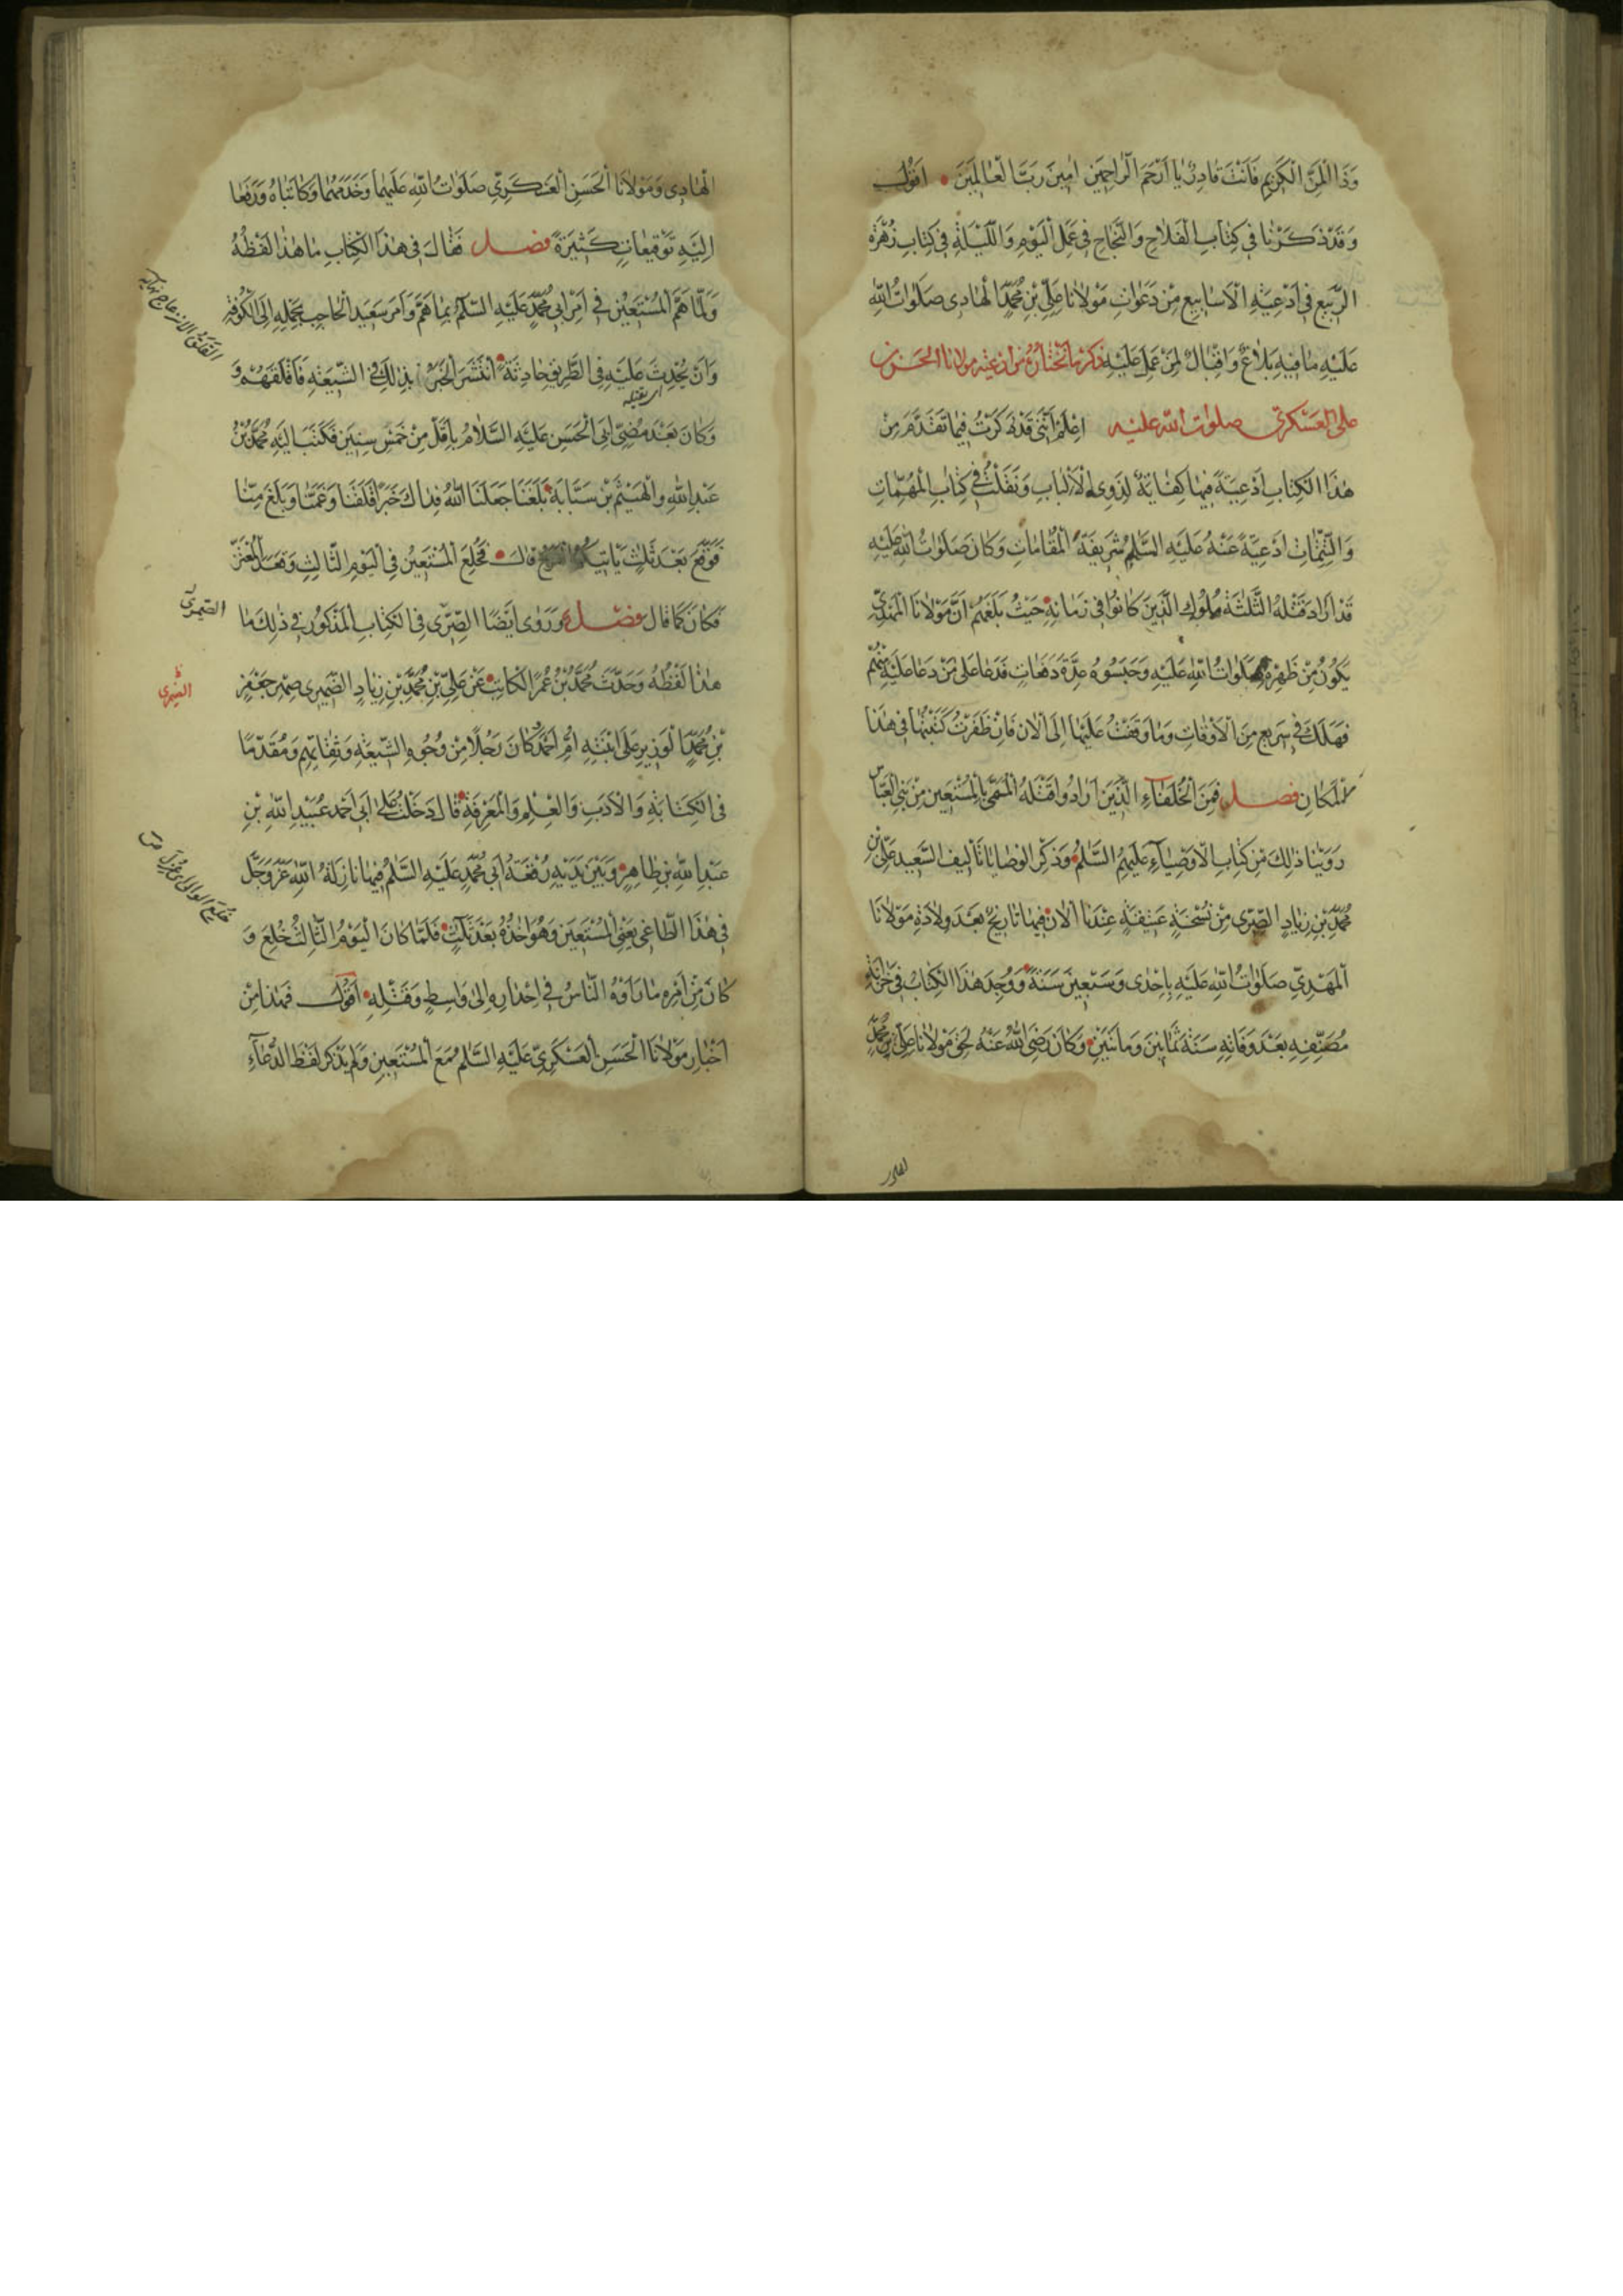 وَذَا الْمَنِّ الْكَرِيمِ فَاَنْتَ قَادِرٌ يَا اَرْحَمَ الرَّاحِمِينَ امِينَ رَبَّ الْعَالَمِينَ اَقُولُ
وَقَدْ ذَكَرْنَا فِي كِتَابِ الْفَلَاحِ وَالنَّجَاحِ فِي عَمَلِ الْيَوْمِ وَاللَّيْلَةِ فِي كِتَابِ زُهْرَةِ
الرَّبِيعِ فِي اَدْعِيَةِ الْاَسَابِيعِ مِنْ دَعَوَاتِ مَوْلَانَا عَلِيِّ بْنِ مُحَمَّدٍ الْهَادِي صَلَوَاتُ اللّٰهِ
عَلَيْهِ مَا فِيهِ بَلَاغٌ وَاِقْبَالٌ لِمَنْ عَمِلَ عَلَيْهِ ذكر ما نختاره من ادعية مولانا الحسن بن
علي العسكري صلوات الله عليه اِعْلَمْ اَنَّنِي قَدْ ذَكَرْتُ فِيمَا تَقَدَّمَ مِنْ
هٰذَا الْكِتَابِ اَدْعِيَةً فِيهَا كِفَايَةٌ لِذَوِي الْاَلْبَابِ وَنَقَلْتُ فِي كِتَابِ الْمُهِمَّاتِ
وَالتَّتِمَّاتِ اَدْعِيَةً عَنْهُ عَلَيْهِ السَّلَمُ شَرِيفَةَ الْمَقَامَاتِ وَكَانَ صَلَوَاتُ اللّٰهِ عَلَيْهِ
قَدْ اَرَادَ قَتْلَهُ الثَّلٰثَةُ مُلُوكِ الَّذِينَ كَانُوا فِي زَمَانِهِ حَيْثُ بَلَغَهُمْ اَنَّ مَوْلَانَا الْمَهْدِيَّ
يَكُونُ مِنْ ظَهْرِهِ صَلَوَاتُ اللّٰهِ عَلَيْهِ وَحَبَسُوهُ عِدَّةَ دَفَعَاتٍ فَدَعَا عَلَى مَنْ دَعَا عَلَيْهِ مِنْهُمْ
فَهَلَكَ فِي سَرِيعٍ مِنَ الْاَوْقَاتِ وَمَا وَقَفْتُ عَلَيْهَا اِلَى الْاٰنَ فَاِنْ ظَفَرْتُ كَتَبْتُهَا فِي هٰذَا
الْمَكَانِ فصل فَمِنَ الْخُلَفَاءِ الَّذِينَ اَرَادُوا قَتْلَهُ الْمُسَمّٰى بِالْمُسْتَعِينِ مِنْ بَنِي الْعَبَّاسِ
رَوَيْنَا ذٰلِكَ مِنْ كِتَابِ الْاَوْصِيَاءِ عَلَيْهِمُ السَّلَمُ وَذِكْرِ الْوَصَايَا تَأْلِيفِ السَّعِيدِ عَلِيِّ بْنِ
مُحَمَّدِ بْنِ زِيَادٍ الصِّيمَرِي مِنْ نُسْخَةٍ عَتِيقَةٍ عِنْدَنَا الْاٰنَ فِيهَا تَارِيخٌ بَعْدَ وِلَادَةِ مَوْلَانَا
الْمَهْدِيِّ صَلَوَاتُ اللّٰهِ عَلَيْهِ بِاِحْدَى وَسَبْعِينَ سَنَةً وَوُجِدَ هٰذَا الْكِتَابُ فِي خِزَانَةِ
مُصَنِّفِهِ بَعْدَ وَفَاتِهِ سَنَةَ ثَمَانِينَ وَمِائَتَيْنِ وَكَانَ رَضِيَ اللّٰهُ عَنْهُ لَحِقَ مَوْلَانَا عَلِيَّ بْنَ مُحَمَّدٍ
الْهَادِي وَمَوْلَانَا الْحَسَنَ الْعَسْكَرِيَّ صَلَوَاتُ اللّٰهِ عَلَيْهِمَا وَخَدَمَهُمَا وَكَاتَبَاهُ وَدَفَعَا
اِلَيْهِ تَوْقِيعَاتٍ كَثِيرَةً فصل فَقَالَ فِي هٰذَا الْكِتَابِ مَا هٰذَا لَفْظُهُ
وَلَمَّا هَمَّ الْمُسْتَعِينُ فِي اَمْرِ اَبِي مُحَمَّدٍ عَلَيْهِ السَّلَمُ بِمَا هَمَّ وَاَمَرَ سَعِيدَ الْحَاجِبَ بِحَمْلِهِ اِلَى الْكُوفَةِ
وَاَنْ يُحْدِثَ عَلَيْهِ فِي الطَّرِيقِ حَادِثَةً انْتَشَرَ الْخَبَرُ بِذٰلِكَ فِي الشِّيعَةِ فَاَقْلَقَهُمْ وَ
اي يقتله
وَكَانَ بَعْدَ مُضِيِّ اَبِي الْحَسَنِ عَلَيْهِ السَّلَامُ بِاَقَلَّ مِنْ خَمْسِ سِنِينَ فَكَتَبَ اِلَيْهِ مُحَمَّدُ بْنُ
عَبْدِ اللّٰهِ وَالْهَيْثَمُ بْنُ سَبَابَةَ بَلَغَنَا جَعَلَنَا اللّٰهُ فِدَاكَ خَبَرٌ اَقْلَقَنَا وَغَمَّنَا وَبَلَغَ مِنَّا
فَوَقَّعَ بَعْدَ ثَلٰثٍ يَأْتِيكُمُ الْفَرَجُ قَالَ فَخُلِعَ الْمُسْتَعِينُ فِي الْيَوْمِ الثَّالِثِ وَقَعَدَ الْمُعْتَزُّ
فَكَانَ كَمَا قَالَ فصل وَرَوٰى اَيْضًا الصِّيمَرِي فِي الْكِتَابِ الْمَذْكُورِ فِي ذٰلِكَ مَا
الصيمري
هٰذَا لَفْظُهُ وَحَدَّثَ مُحَمَّدُ بْنُ عُمَرَ الْكَاتِبُ عَنْ عَلِيِّ بْنِ مُحَمَّدِ بْنِ زِيَادٍ الصَّيْمَرِي صِهْرِ جَعْفَرِ
بْنِ مُحَمَّدٍ الْوَزِيرِ عَلَى ابْنَتِهِ اُمِّ اَحْمَدَ وَكَانَ رَجُلًا مِنْ وُجُوهِ الشِّيعَةِ وَثِقَاتِهِمْ وَمُقَدَّمًا
فِي الْكِتَابَةِ وَالْاَدَبِ وَالْعِلْمِ وَالْمَعْرِفَةِ قَالَ دَخَلْتُ عَلَى اَبِي اَحْمَدَ عُبَيْدِ اللّٰهِ بْنِ
عَبْدِ اللّٰهِ بْنِ طَاهِرٍ وَبَيْنَ يَدَيْهِ رُقْعَةُ اَبِي مُحَمَّدٍ عَلَيْهِ السَّلَمُ فِيهَا نَازَلْتُ اللّٰهَ عَزَّ وَجَلَّ
فِي هٰذَا الطَّاغِي يَعْنِي الْمُسْتَعِينَ وَهُوَ اٰخِذُهُ بَعْدَ ثَلٰثٍ فَلَمَّا كَانَ الْيَوْمُ الثَّالِثُ خُلِعَ وَ
كَانَ مِنْ اَمْرِهِ مَا رَاٰهُ النَّاسُ فِي اِحْدَارِهِ اِلٰى وَاسِطٍ وَقَتْلِهِ اَقُولُ فَهٰذَا مِنْ
اَخْبَارِ مَوْلَانَا الْحَسَنِ الْعَسْكَرِيِّ عَلَيْهِ السَّلَمُ مَعَ الْمُسْتَعِينِ وَلَمْ يَذْكُرْ لَفْظَ الدُّعَاءِ